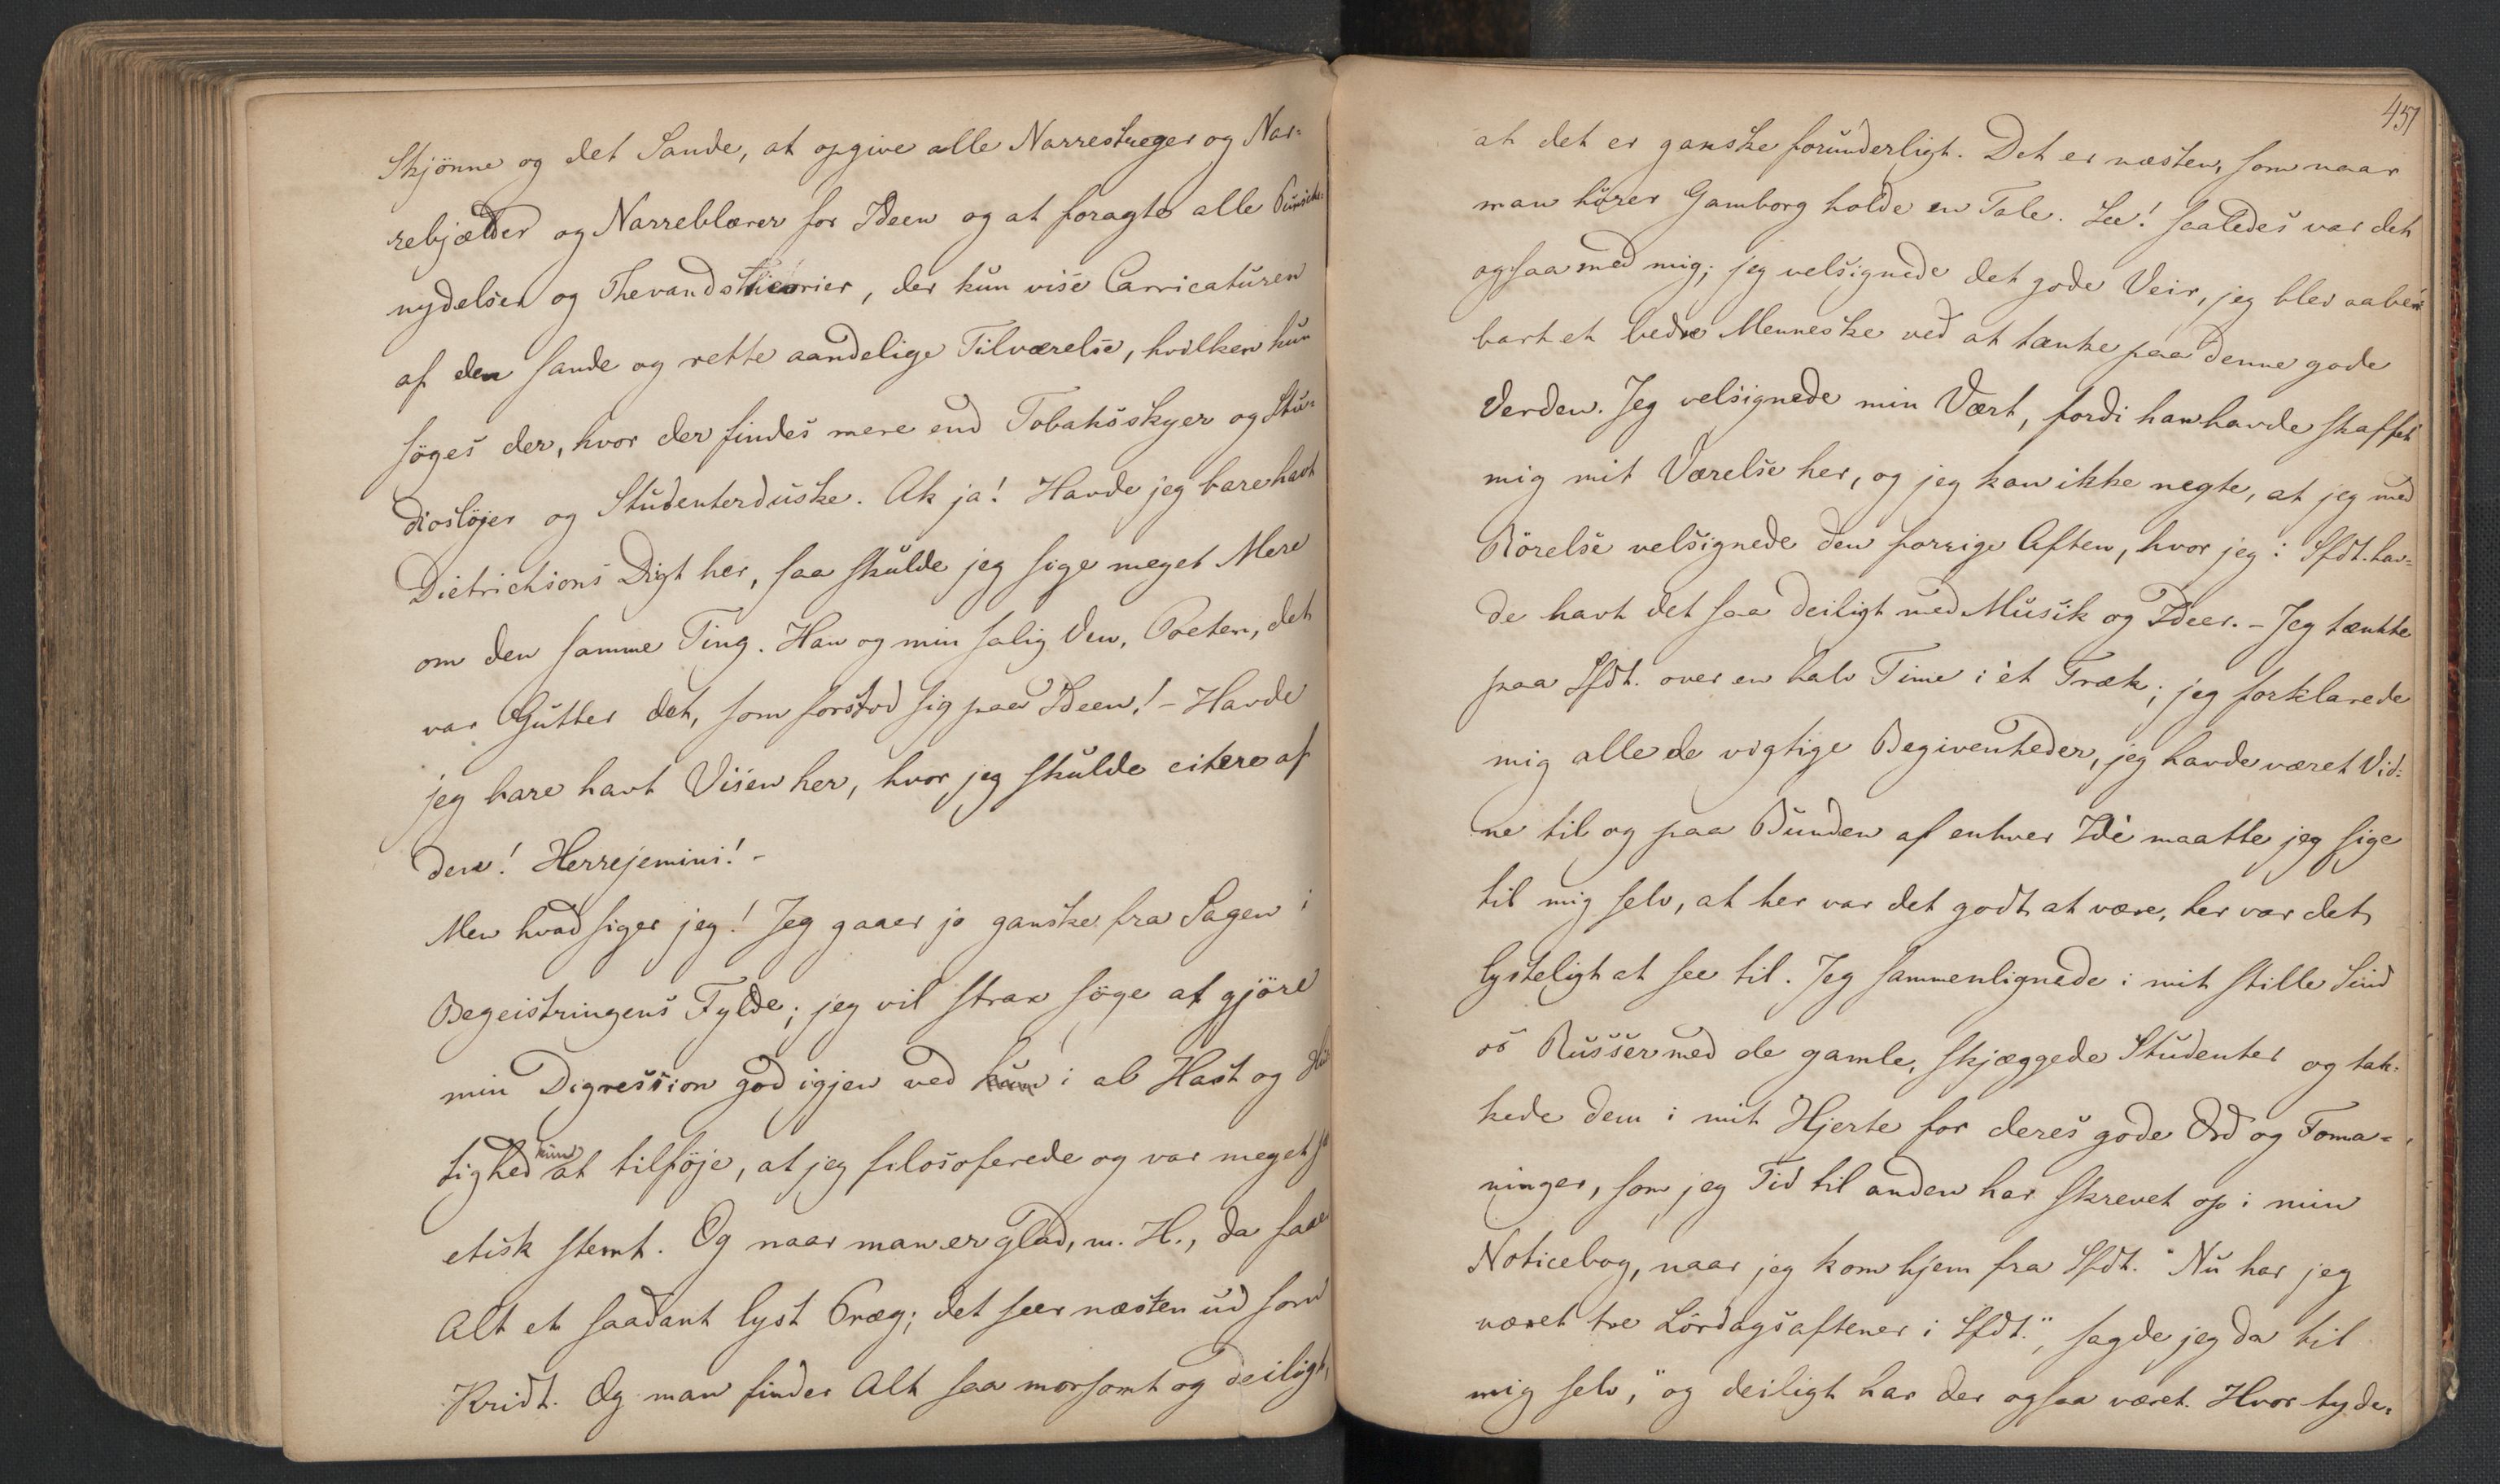 Skjönne og det Sande, at opgive alle Narrestreger og Nar-
rebjælder og Narreblærer for Ideen og at foragte alle Punsche-
nydelser og Thevandstheorier, der kun vise Carricaturen
af den sande og rette aandelige Tilværelse, hvilken kun
söges der, hvor der findes mere end Tobaksskyer og Stu-
diosløjer og Studenterduske. Ak ja! Havde jeg bare havt
Dietrichsons Digt her, saa skulde jeg sige meget Mere
om den samme Ting. Han og min salig Ven, Poeten, det
var Gutter det, som forstod sig paa Ideen! - Havde
jeg bare havt Visen her, hvor jeg skulde citere af
den! Herrejemini! -
Men hvad siger jeg! Jeg gaaer jo ganske fra Sagen i
Begeistringens Fylde; jeg vil strax söge at gjöre
min Digression god igjen ved kun i al Hast og Hur-
tighed kun at tilföje, at jeg filosoferede og var meget po-
etisk stemt. Og naar man er glad, m. H., da faaer
Alt et saadant lyst Præg; det seer næsten ud som
Kridt. Og man finder Alt saa morsomt og deiligt,
451
at det er ganske forunderligt. Det er næsten, som naar
man hører Gamborg holde en Tale. See! saaledes var det
ogsaa med mig; jeg velsignede det gode Veir, jeg blev aaben-
bart et bedre Menneske ved at tænke paa denne gode
Verden. Jeg velsignede min Vært, fordi han havde skaffet
mig mit Værelse her, og jeg kan ikke negte, at jeg med
Rörelse velsignede den forrige Aften, hvor jeg i Sfdt. hav-
de havt det saa deiligt med Musik og Ideer. - Jeg tænkte
paa Sfdt. over en halv Time i ét Træk; jeg forklarede
mig alle de vigtige Begivenheder, jeg havde været Vid-
ne til og paa Bunden af enhver Idé maatte jeg sige
til mig selv, at her var det godt at være, her var det
lysteligt at see til. Jeg sammenlignede i mit stille Sind
os Russer med de gamle, skjæggede Studenter og tak-
kede dem i mit Hjerte for deres gode Ord og Forma-
ninger, som jeg Tid til anden har skrevet op i min
Noticebog, naar jeg kom hjem fra Sfdt. "Nu har jeg
været tre Lördagsaftener i Sfdt.", sagde jeg da til
mig selv, "og deiligt har der ogsaa været. Hvor tyde-